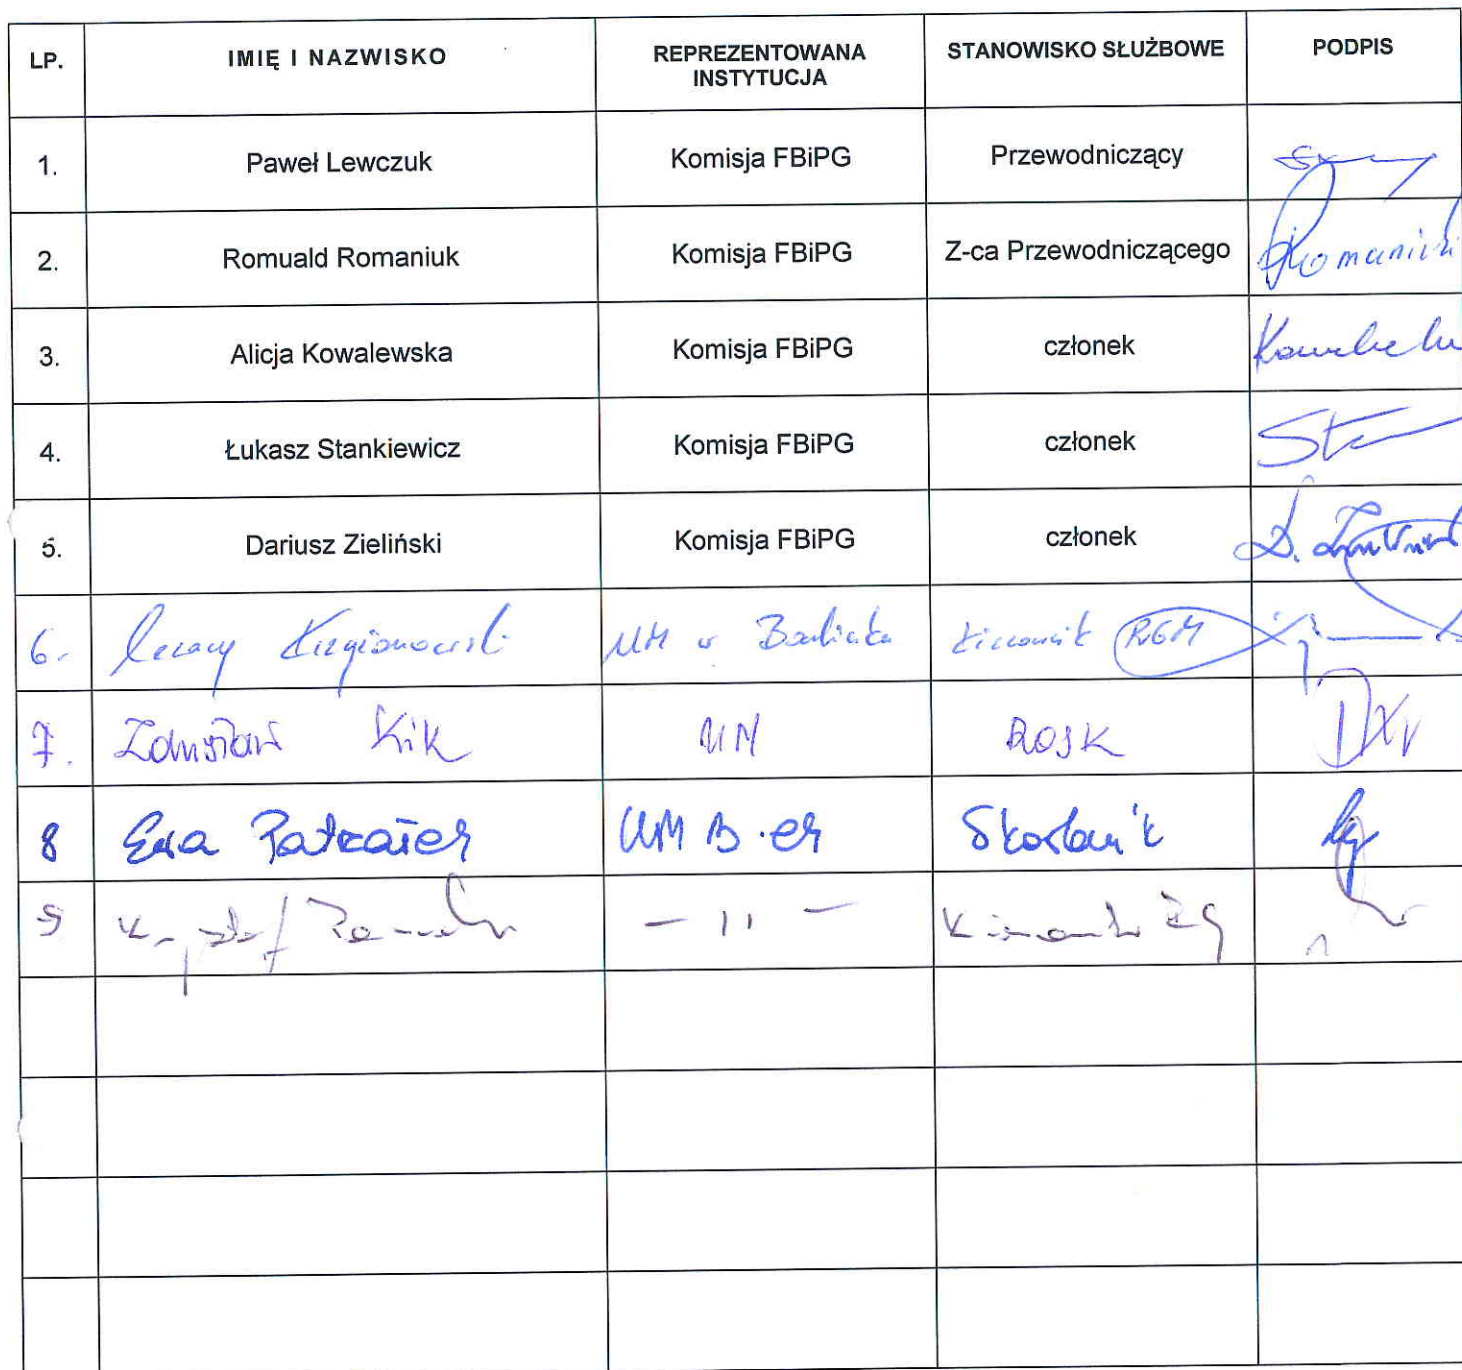 LP. IMIĘ I NAZWISKO REPREZENTOWANA INSTYTUCJA STANOWISKO SŁUŻBOWE PODPIS
1. Paweł Lewczuk Komisja FBiPG Przewodniczący
2. Romuald Romaniuk Komisja FBiPG Z-ca Przewodniczącego
3. Alicja Kowalewska Komisja FBiPG członek
4. Łukasz Stankiewicz Komisja FBiPG członek
5. Dariusz Zieliński Komisja FBiPG członek
6. UM w RGM
7. Zdzisław Kik UM ROSK
8 Ewa UM B-er Skarbnik
9 Krzysztof - 11 -